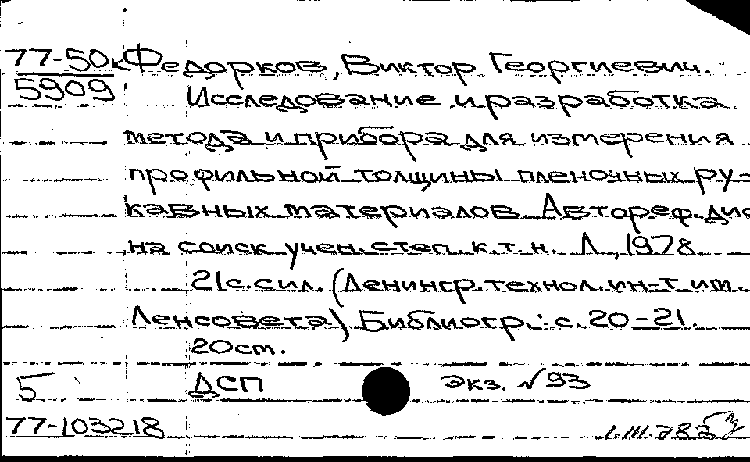 77-50к Федорков, Виктор Георгиевич.
5909 Исследование и разработка
метода и прибора для измерения
профильной толщины пленочных ру-
кавных материалов. Автореф. дис
на соиск. учен. степ. к.т.н. Л., 1978.
21с. с ил. (Ленингр. технол. ин-т им.
Ленсовета) Библиогр.: с. 20-21.
20 см.
5 ДСП Экз. №93
77-103218 1.III.78